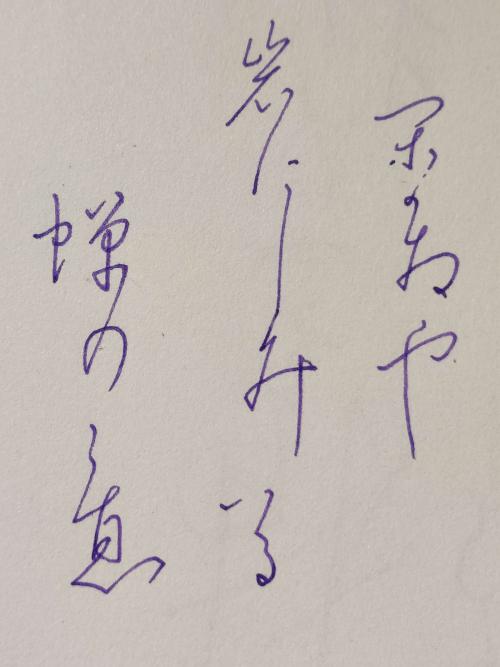 閑さや
岩にしみいる
蝉の声